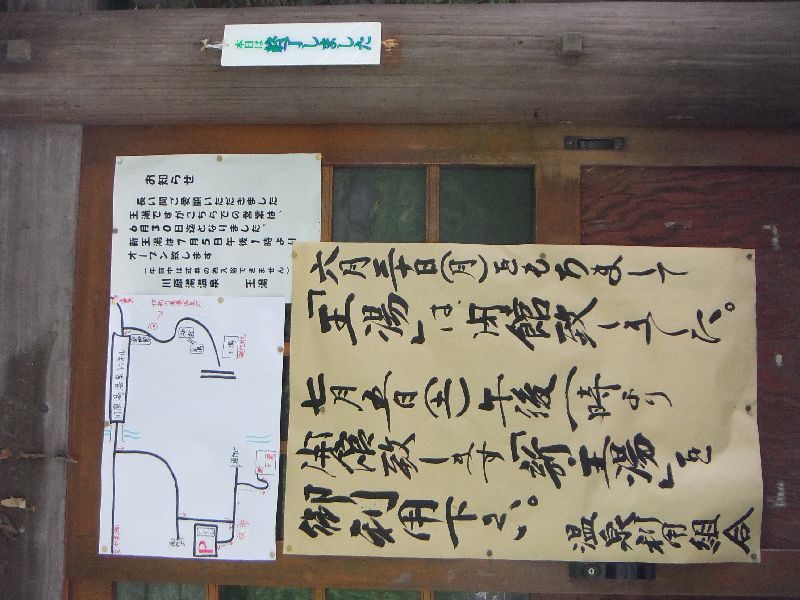 本日は終了しました
お知らせ
長い間ご愛顧いただきました
王湯ですがこちらでの営業は、
6月30日迄となりました。
新王湯は7月5日午後1時より
オープン致します
(午前中は式典の為入浴できません)
川原湯温泉　王湯
六月三十日(月)をもちまして
「王湯」は閉館致しました。
七月五日(土)午後一時より
開館致します「新・王湯」を
御利用下さい。
温泉利用組合
川原湯温泉トンネル
王湯
現在地
P